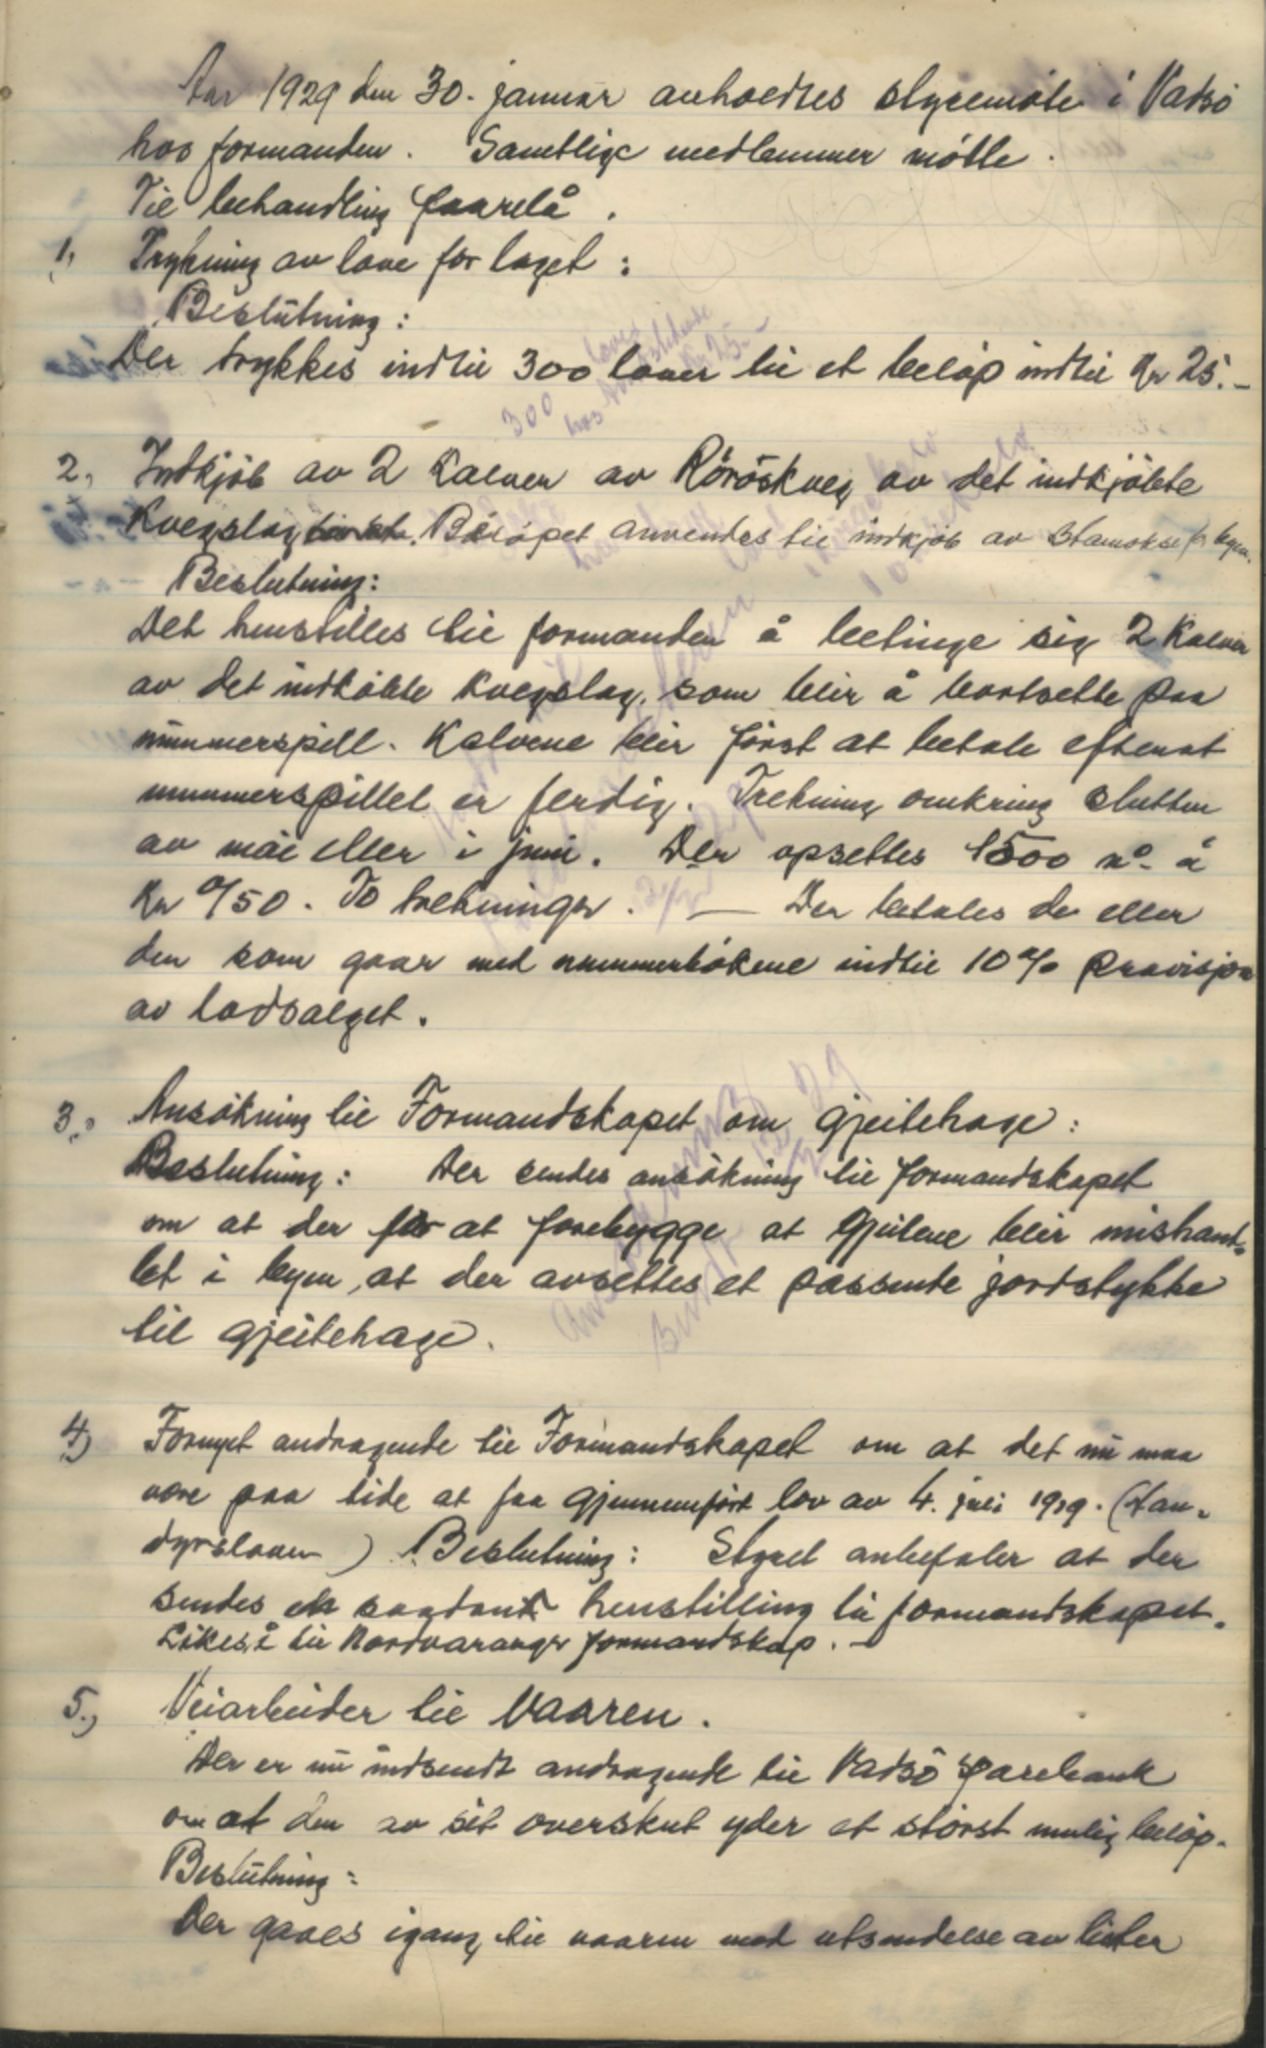 Aar 1929 den 30. januar avholdtes styremöte i Vadsö
hos formanden. Samtlige medlemmer mötte.
Til behandling faarelå.
1, Trykning av love for laget:
Beslutning:
Der trykkes indtil 300 lover til et belöp indtil Kr 25.-
2, Indkjöb av 2 Kalver av Röröskveg av det indkjöbte
Kvegslag. Belöpet anvendes til indkjöb av Stamokse for byen.
Beslutning:
Det henstilles til formanden å betinge sig 2 Kalver
av det indköbte kvegslag, som blir å bortsette paa
nummerspill. Kalvene blir först at betale efterat
nummerspillet er ferdig. Trekning omkring slutten
av mai eller i juni. Der opsettes 1500 no. à
Kr 0/50. To trekninger. — Der betales de eller
den som gaar med nummerbökene indtil 10% provisjon
av lodsalget.
3, Ansökning til Formandskapet om gjeitehage:
Beslutning: Der sendes ansökning til formandskapet
om at der for at forebygge at gjeitene blir mishand-
let i byen, at der avsettes et passende jordstykke
til gjeitehage.
4) Fornyet andragende til Formandskapet om at det nu maa
være paa tide at faa gjennemfört lov av 4. juli 1919. (Han-
dyrsloven) Beslutning: Styret anbefaler at der
sendes en saadan henstilling til formandskapet.
Likeså til Nordvaranger formandskap. -
5, Veiarbeider til Vaaren.
Der er nu indsendt andragende til Vadsö Sparebank
om at den av sit overskut yder et störst mulig belöp.
Beslutning:
Der gaaes igang til vaaren med utsendelse av lister